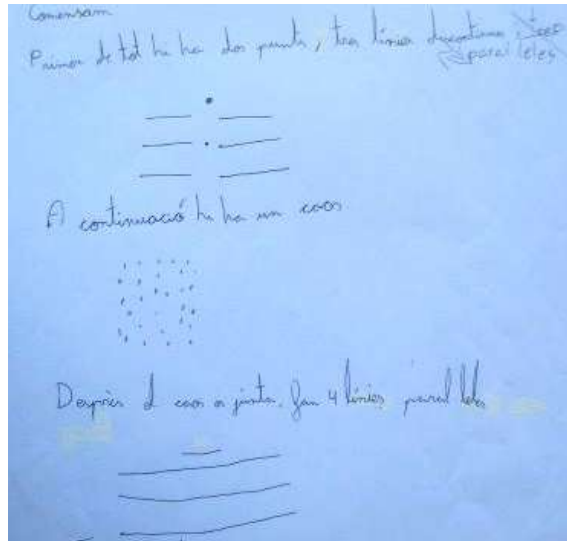 Comensam
Primer de tot hi ha dos punts, tres línies discontinues,
paral·leles
A continuació hi ha un caos.
Després d caos es junta, fan 4 línies paral·leles